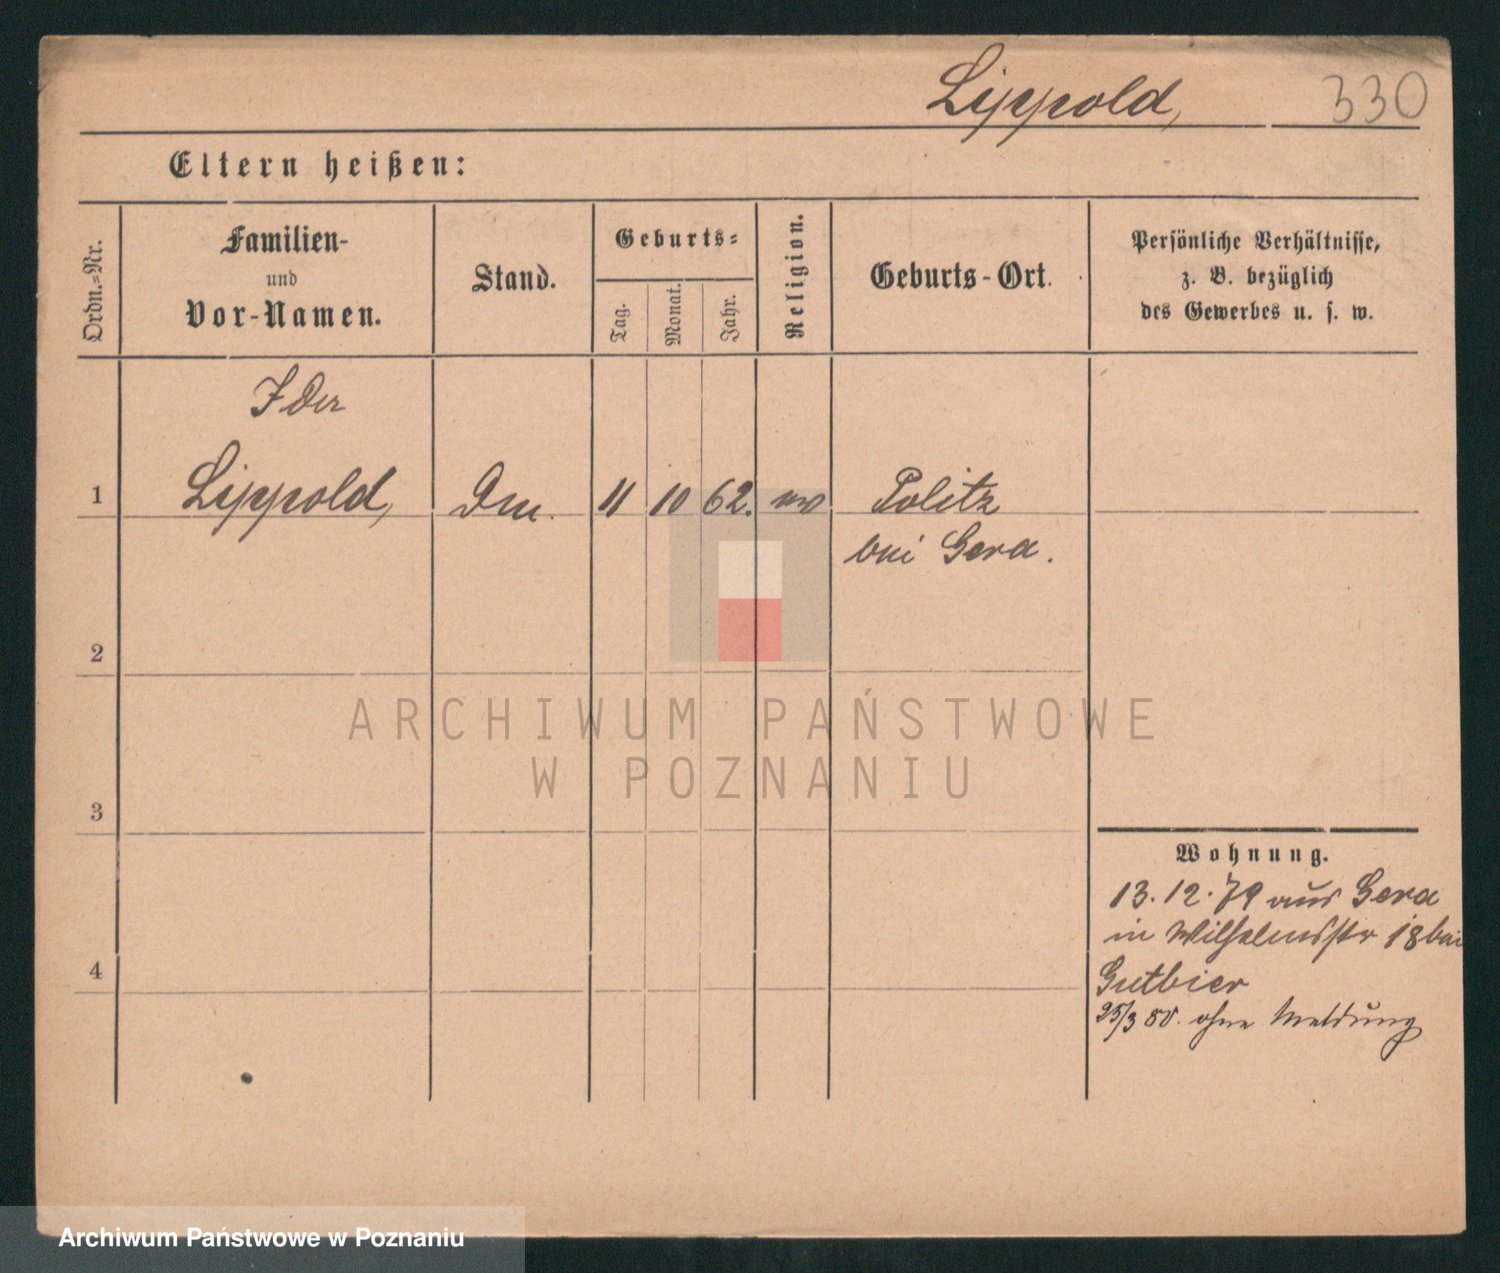 Lippold,
330
Eltern heißen:
Ordn.=Nr.
Familien-
und
Vor-Namen.
Stand.
Geburts=
Tag.
Monat.
Jahr.
Religion.
Geburts-Ort.
Persönliche Verhältnisse,
z. B. bezüglich
des Gewerbes u. s. w.
1
Lippold,
11
10
62.
ev
Politz
bei Gera.
2
3
4
Wohnung.
13.12.79 aus Gera
in Wilhelmsstr 18 bei
Gutbier
25/3 80. ohne Meldung
ARCHIWUM PAŃSTWOWE
W POZNANIU
Archiwum Państwowe w Poznaniu